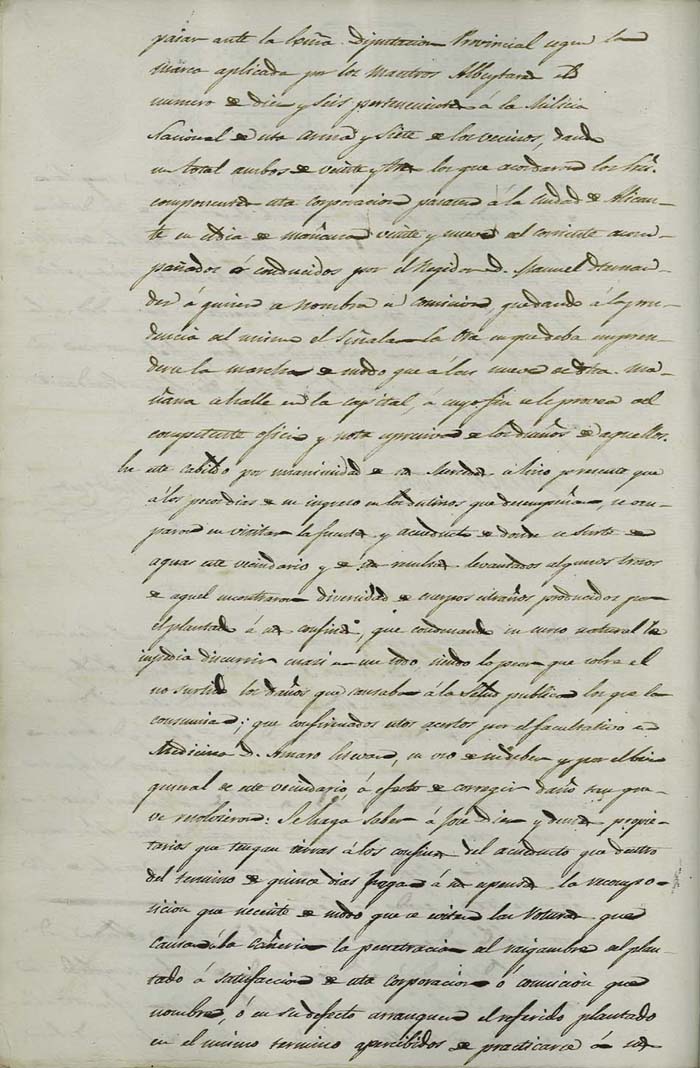 pasar ante la Exma. Diputacion Provincial segun la
marca aplicada por los Maestros Albeytares
numero de diez y seis pertenecientes á la Milicia
Nacional de esta arma y siete de los vecinos, dando
un total ambos de veinte y tres los que acordaron los Sres.
componentes esta corporacion pasasen á la Ciudad de Alican-
te en el dia de mañana veinte y nueve del corriente acom-
pañados ó conducidos por el Regidor D. Manuel Hernan-
dez á quien se nombra en comision, quedando á la pru-
dencia del mismo el señalar la ora en que deba empren-
derse la marcha de modo que á las nueve de dha. ma-
ñana se halle en la capital, a cuyo fin se le provea del
competente oficio y nota expresiva de los dueños de aquellos.
En este cabildo por unanimidad de sus Mercedes se hizo presente que
á los pocos dias de su ingreso en los destinos que desempeñan, se ocu-
paron en visitar la fuente y acueducto de donde se surte de
aguas este vecindario y de sus resultas levantados algunos trozos
de aquel encontraron diversidad de cuerpos estraños producidos por
el plantado á sus confines, que condenando su curso natural le
impedia discurrir cuasi en un todo, siendo lo peor que sobre el
no surtido los daños que causaba á la salud publica los que la
consumian; que confirmados estos acertos por el facultativo en
Medicina D. Amaro, en uso de su deber y por el bien
general de este vecindario, á efecto de corregir daño tan gra-
ve resolvieron: Se haga saber á José Diez y demas propie-
tarios que tengan tierras á los confines del acueducto que dentro
del termino de quince dias hagan á sus expensas la recompo-
sicion que necesite de modo que se eviten las roturas que
causa á la cañeria la penetracion del raigambre del plan-
tado á satisfaccion de esta corporacion ó comision que
nombre, ó en su defecto arranquen el referido plantado
en el mismo termino apercibidos de practicarse á sus